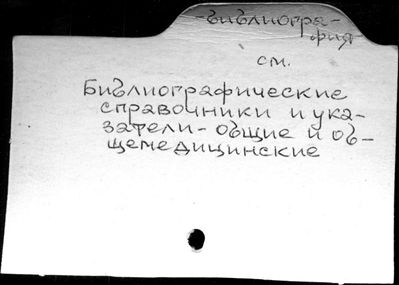 -библиогра-
фия
см.
Библиографические
справочники и ука-
затели - общие и об-
щемедицинские